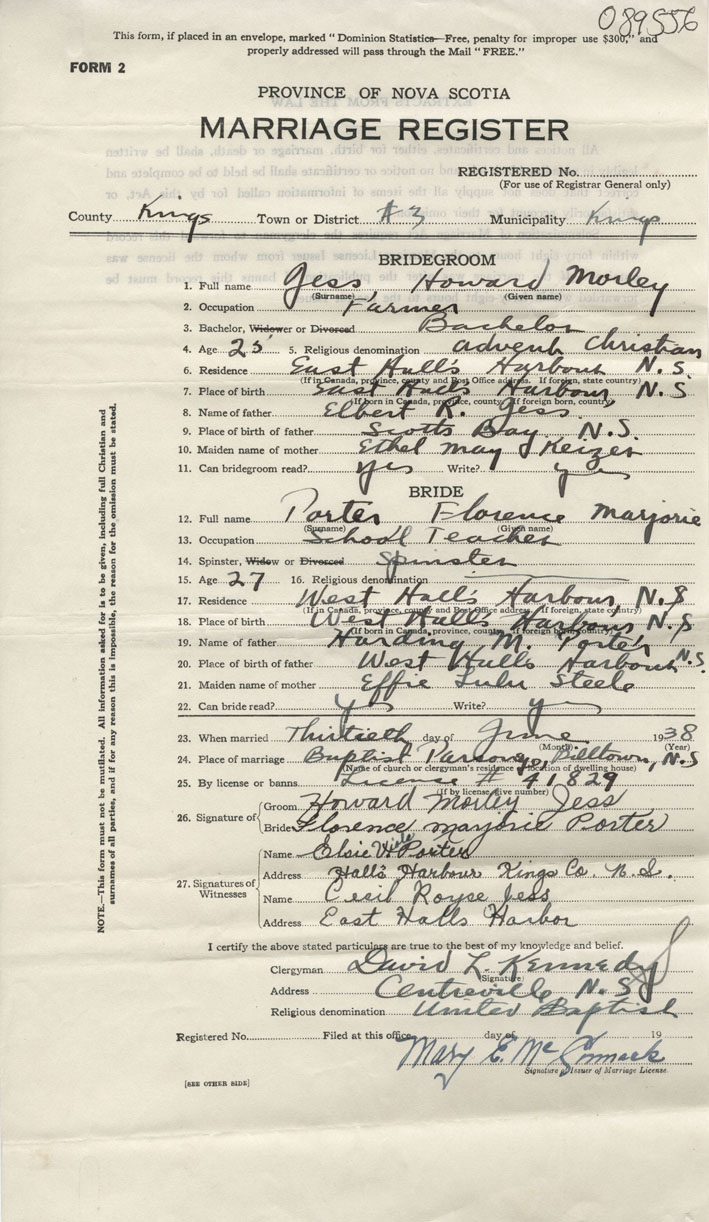 089556
This form, if placed in an envelope, marked "Dominion Statistics—Free, penalty for improper use $300," and
properly addressed will pass through the Mail "FREE."
FORM 2
PROVINCE OF NOVA SCOTIA
MARRIAGE REGISTER
REGISTERED No.
(For use of Registrar General only)
County Kings Town or District #3 Municipality Kings
BRIDEGROOM
1. Full name Jess, Howard Morley
(Surname) (Given name)
2. Occupation Farmer
3. Bachelor, Widower or Divorced Bachelor
4. Age 25 5. Religious denomination Advent Christian
6. Residence East Hall's Harbour N.S.
(If in Canada, province, county and Post Office address. If foreign, state country)
7. Place of birth East Halls Harbour N.S
(If born in Canada, province, county, if foreign born, country)
8. Name of father Elbert R. Jess
9. Place of birth of father Scotts Bay N.S.
10. Maiden name of mother Ethel May Keizer
11. Can bridegroom read? yes Write? yes
BRIDE
12. Full name Porter Florence Marjorie
(Surname) (Given name)
13. Occupation School Teacher
14. Spinster, Widow or Divorced Spinster
15. Age 27 16. Religious denomination
17. Residence West Hall's Harbour, N.S
(If in Canada, province, county and Post Office address. If foreign, state country)
18. Place of birth West Hall's Harbour N.S
(If born in Canada, province, county, if foreign born, country)
19. Name of father Harding M. Porter
20. Place of birth of father West Halls Harbour N.S.
21. Maiden name of mother Effie Lulu Steele
22. Can bride read? yes Write? yes
23. When married Thirtieth day of June 1938
(Month) (Year)
24. Place of marriage Baptist Parsonage, Billtown, N.S
(Name of church or clergyman's residence or location of dwelling house)
25. By license or banns License # 41829
(If by license, give number)
26. Signature of Groom Howard Morley Jess
Bride Florence Marjorie Porter
27. Signatures of Witnesses
Name Elsie Porter
Address Halls Harbour Kings Co. N.S.
Name Cecil Royse Jess
Address East Halls Harbor
I certify the above stated particulars are true to the best of my knowledge and belief.
Clergyman David L. Kennedy
(Signature)
Address Centreville N.S
Religious denomination United Baptist
Registered No. Filed at this office day of 19
Mary E. McCormack
Signature of Issuer of Marriage License.
[SEE OTHER SIDE]
NOTE.—This form must not be mutilated. All information asked for is to be given, including full Christian and
surnames of all parties, and if for any reason this is impossible, the reason for the omission must be stated.